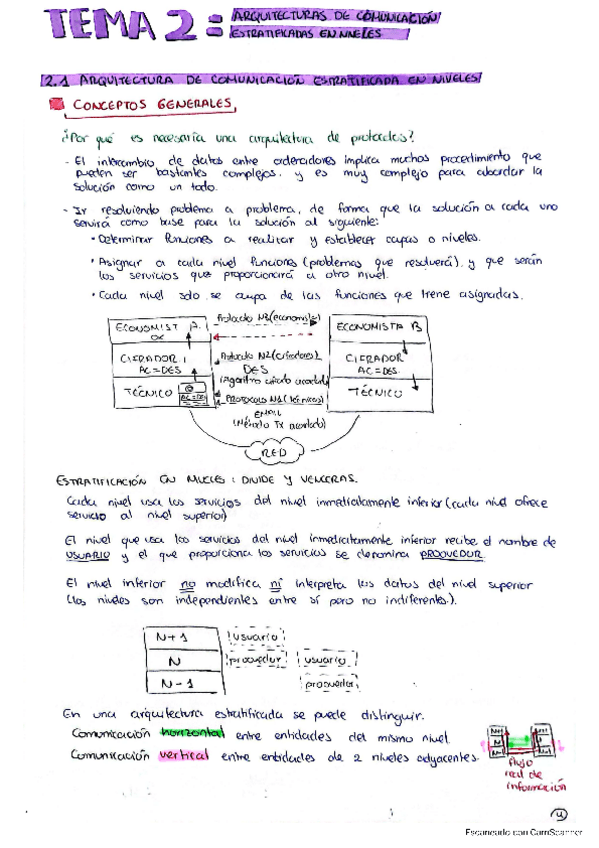 TEMA 2: ARQUITECTURAS DE COMUNICACIÓN
ESTRATIFICADAS EN NIVELES
2.1 ARQUITECTURA DE COMUNICACIÓN ESTRATIFICADA EN NIVELES
CONCEPTOS GENERALES
¿Por qué es necesaria una arquitectura de protocolos?
- El intercambio de datos entre ordenadores implica muchos procedimiento que
pueden ser bastantes complejos, y es muy complejo para abordar la
solución como un todo.
- Ir resolviendo problema a problema, de forma que la solución a cada uno
servirá como base para la solución al siguiente:
• Determinar funciones a realizar y establecer capas o niveles.
• Asignar a cada nivel funciones (problemas que resolverá), y que serán
los servicios que proporcionará a otro nivel.
• Cada nivel solo se ocupa de las funciones que tiene asignadas.
ECONOMIST A
OK
Protocolo N3 (economista)
ECONOMISTA B
CIFRADOR
AC=DES
Protocolo N2 (cifradores)
DES
(Algoritmo cifrado acordado)
CIFRADOR
AC=DES.
TÉCNICO
AC=DES
PROTOCOLO N1 (técnicos)
EMAIL
(Método Tx acordado)
TÉCNICO
RED
ESTRATIFICACIÓN EN NIVELES: DIVIDE Y VENCERAS.
Cada nivel usa los servicios del nivel inmediatamente inferior (cada nivel ofrece
servicio al nivel superior)
El nivel que usa los servicios del nivel inmediatamente inferior recibe el nombre de
USUARIO y el que proporciona los servicios se denomina PROOVEDOR.
El nivel inferior no modifica ni interpreta los datos del nivel superior
(los niveles son independientes entre sí pero no indiferentes.).
N+1 usuario
N proovedor usuario
N-1 proovedor
En una arquitectura estratificada se puede distinguir.
Comunicación horizontal entre entidades del mismo nivel.
Comunicación vertical entre entidades de 2 niveles adyacentes.
N+1
N
N-1
flujo
real de
información
4
Escaneado con CamScanner